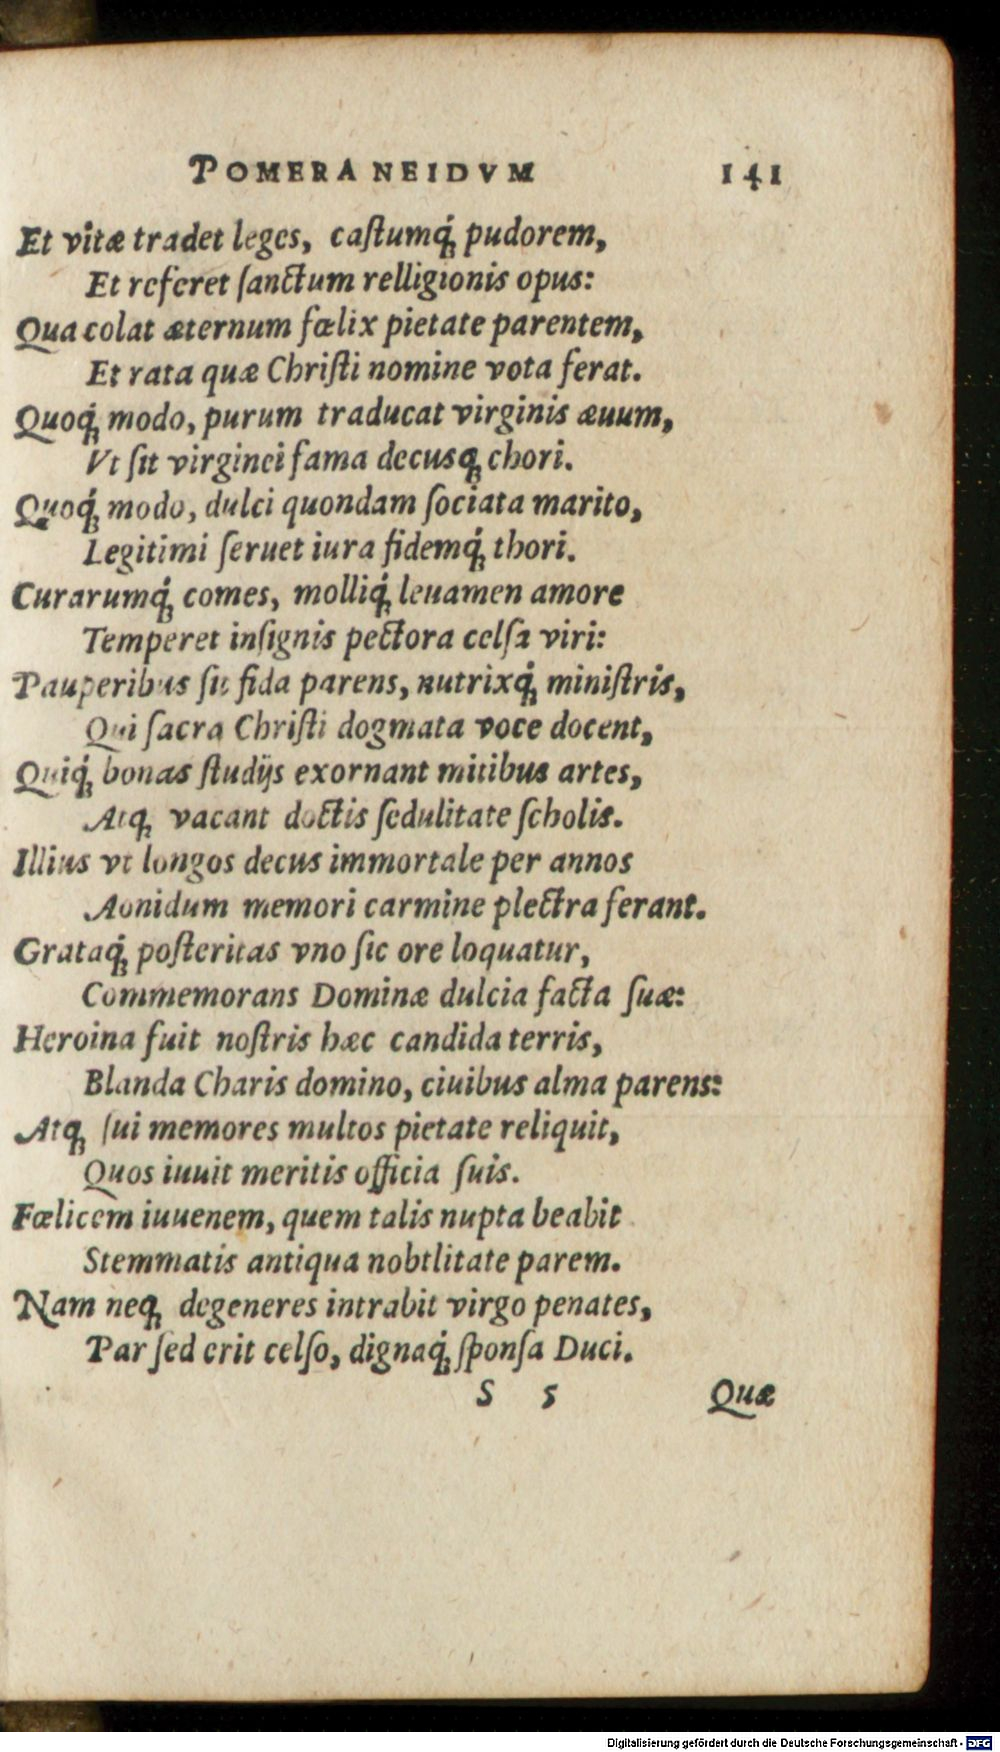 POMERANEIDVM 141
Et vitæ tradet leges, caſtumq́; pudorem,
Et referet ſanctum relligionis opus:
Qua colat æternum fœlix pietate parentem,
Et rata quæ Chriſti nomine vota ferat.
Quoq́; modo, purum traducat virginis æuum,
Vt ſit virginei fama decusq; chori.
Quoq́; modo, dulci quondam ſociata marito,
Legitimi ſeruet iura fidemq́; thori.
Curarumq́; comes, molliq́; leuamen amore
Temperet inſignis pectora celſa viri:
Pauperibus ſit fida parens, nutrixq́; miniſtris,
Qui ſacra Chriſti dogmata voce docent,
Quiq́; bonas ſtudijs exornant mitibus artes,
Atq; vacant doctis ſedulitate ſcholis.
Illius vt longos decus immortale per annos
Aonidum memori carmine plectra ferant.
Grataq́; poſteritas vno ſic ore loquatur,
Commemorans Dominæ dulcia facta ſuæ:
Heroina fuit noſtris hæc candida terris,
Blanda Charis domino, ciuibus alma parens:
Atq; ſui memores multos pietate reliquit,
Quos iuuit meritis officia ſuis.
Fœlicem iuuenem, quem talis nupta beabit
Stemmatis antiqua nobtlitate parem.
Nam neq; degeneres intrabit virgo penates,
Par ſed erit celſo, dignaq́; ſponſa Duci.
S 5 Quæ
Digitalisierung gefördert durch die Deutsche Forschungsgemeinschaft - DFG